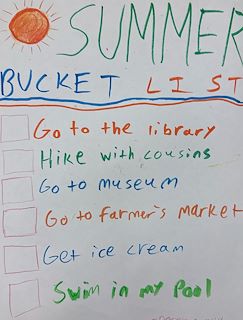 SUMMER
BUCKET LIST
Go to the library
Hike with cousins
Go to museum
Go to farmer's market
Get ice cream
Swim in my pool